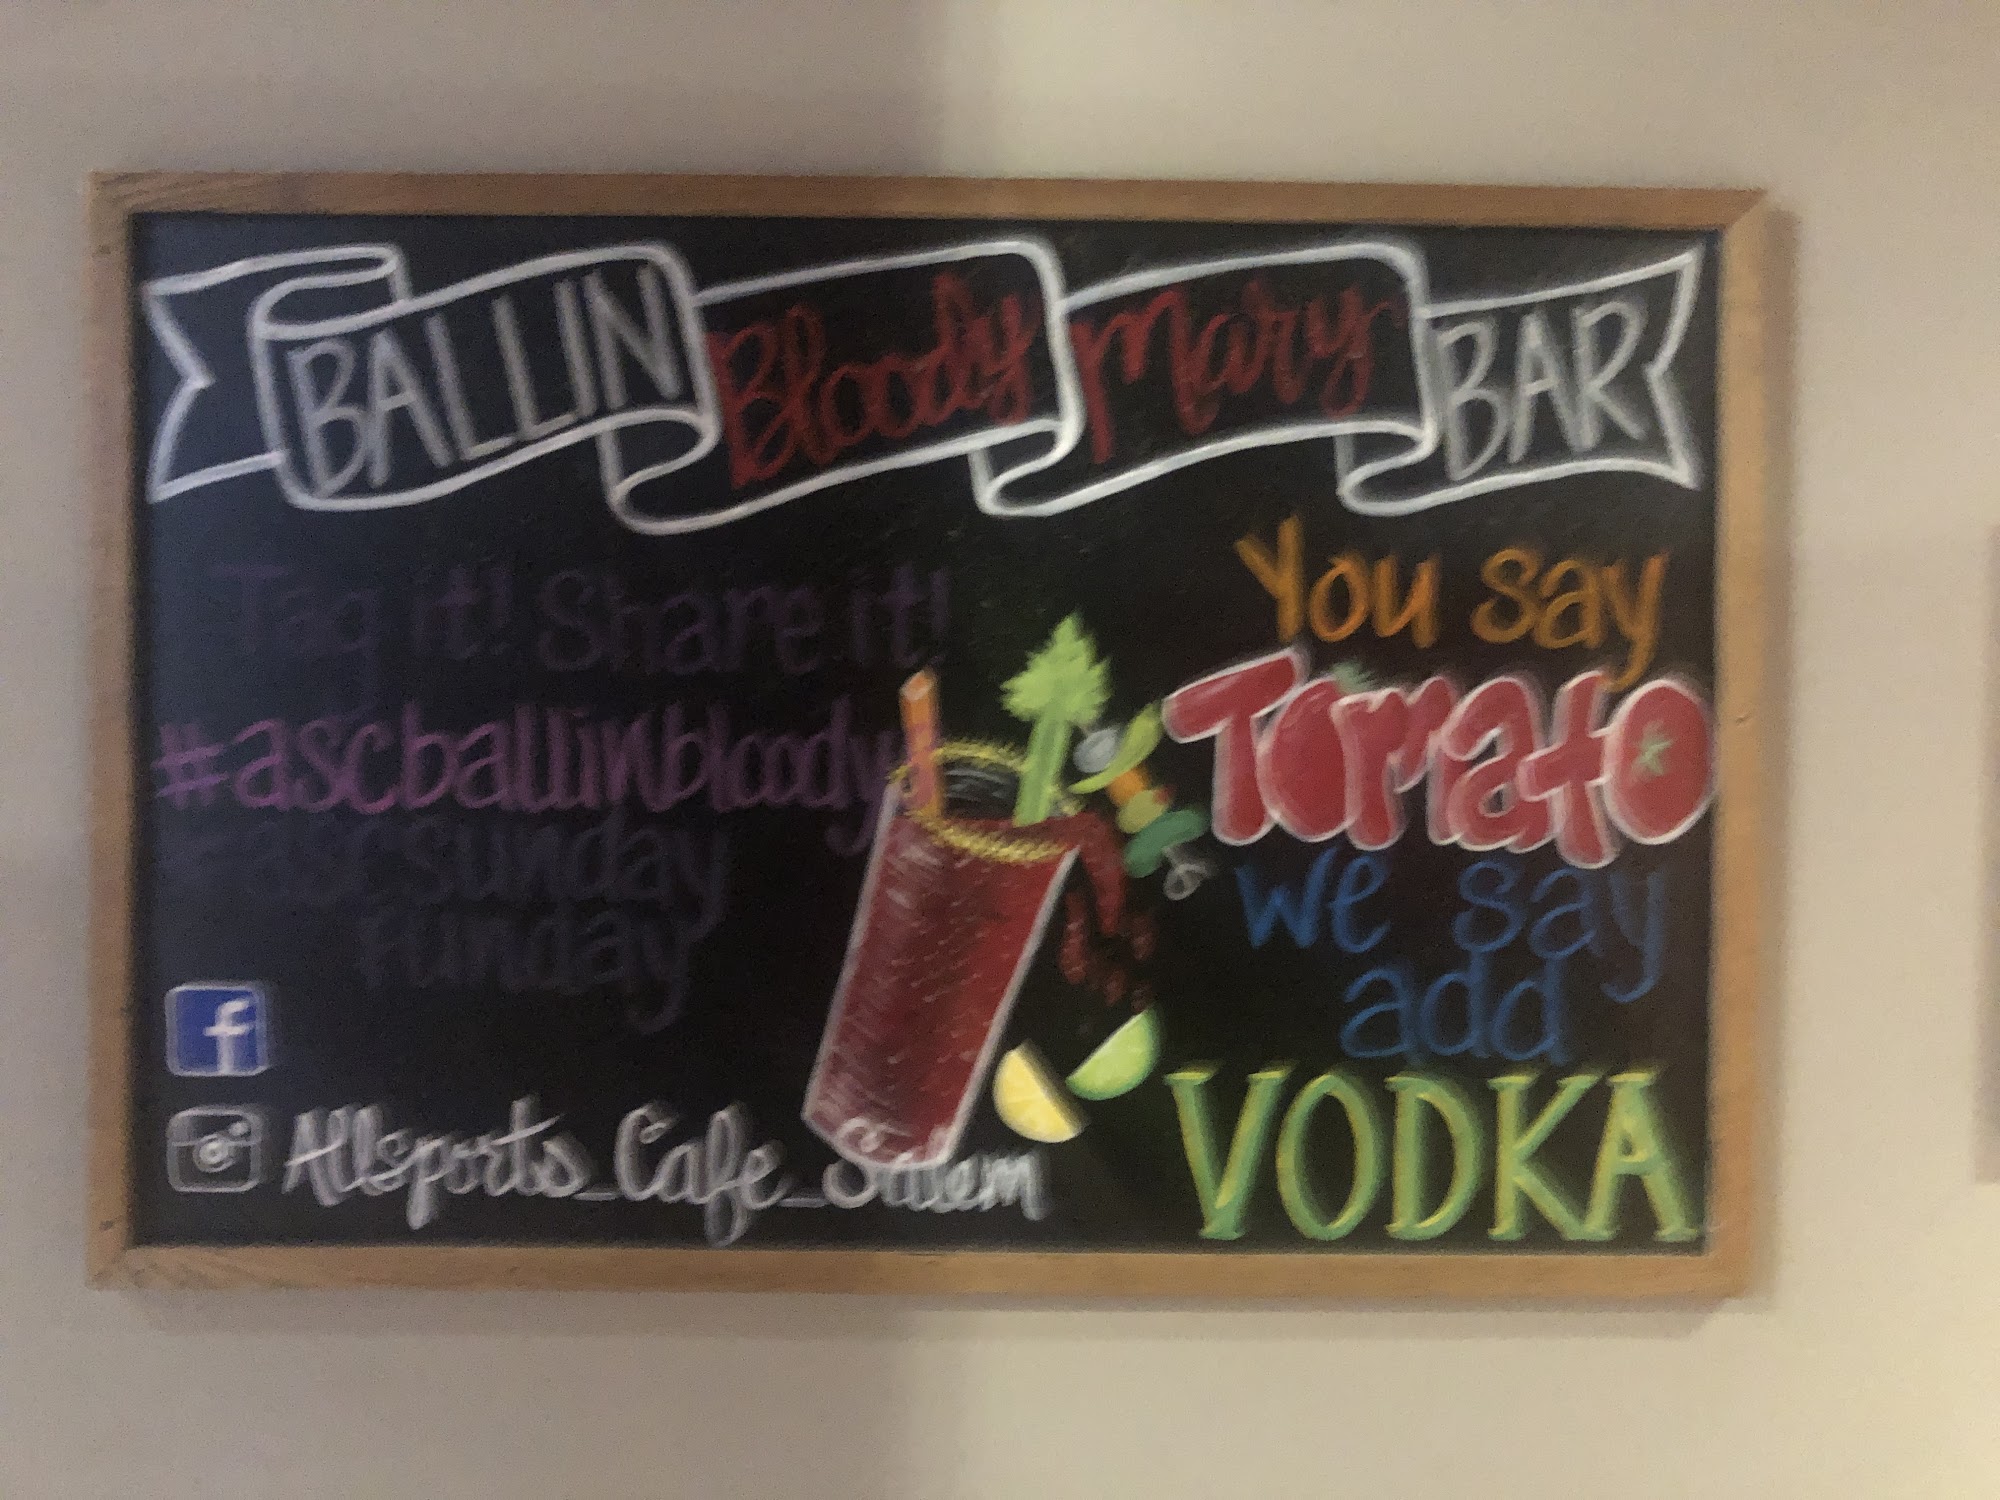 BALLIN Bloody Mary BAR
Tag it! Share it!
#ascballinbloody
#ascsunday
Funday
f
Allsports_Cafe_Salem
You say
Tomato
We say
add
VODKA